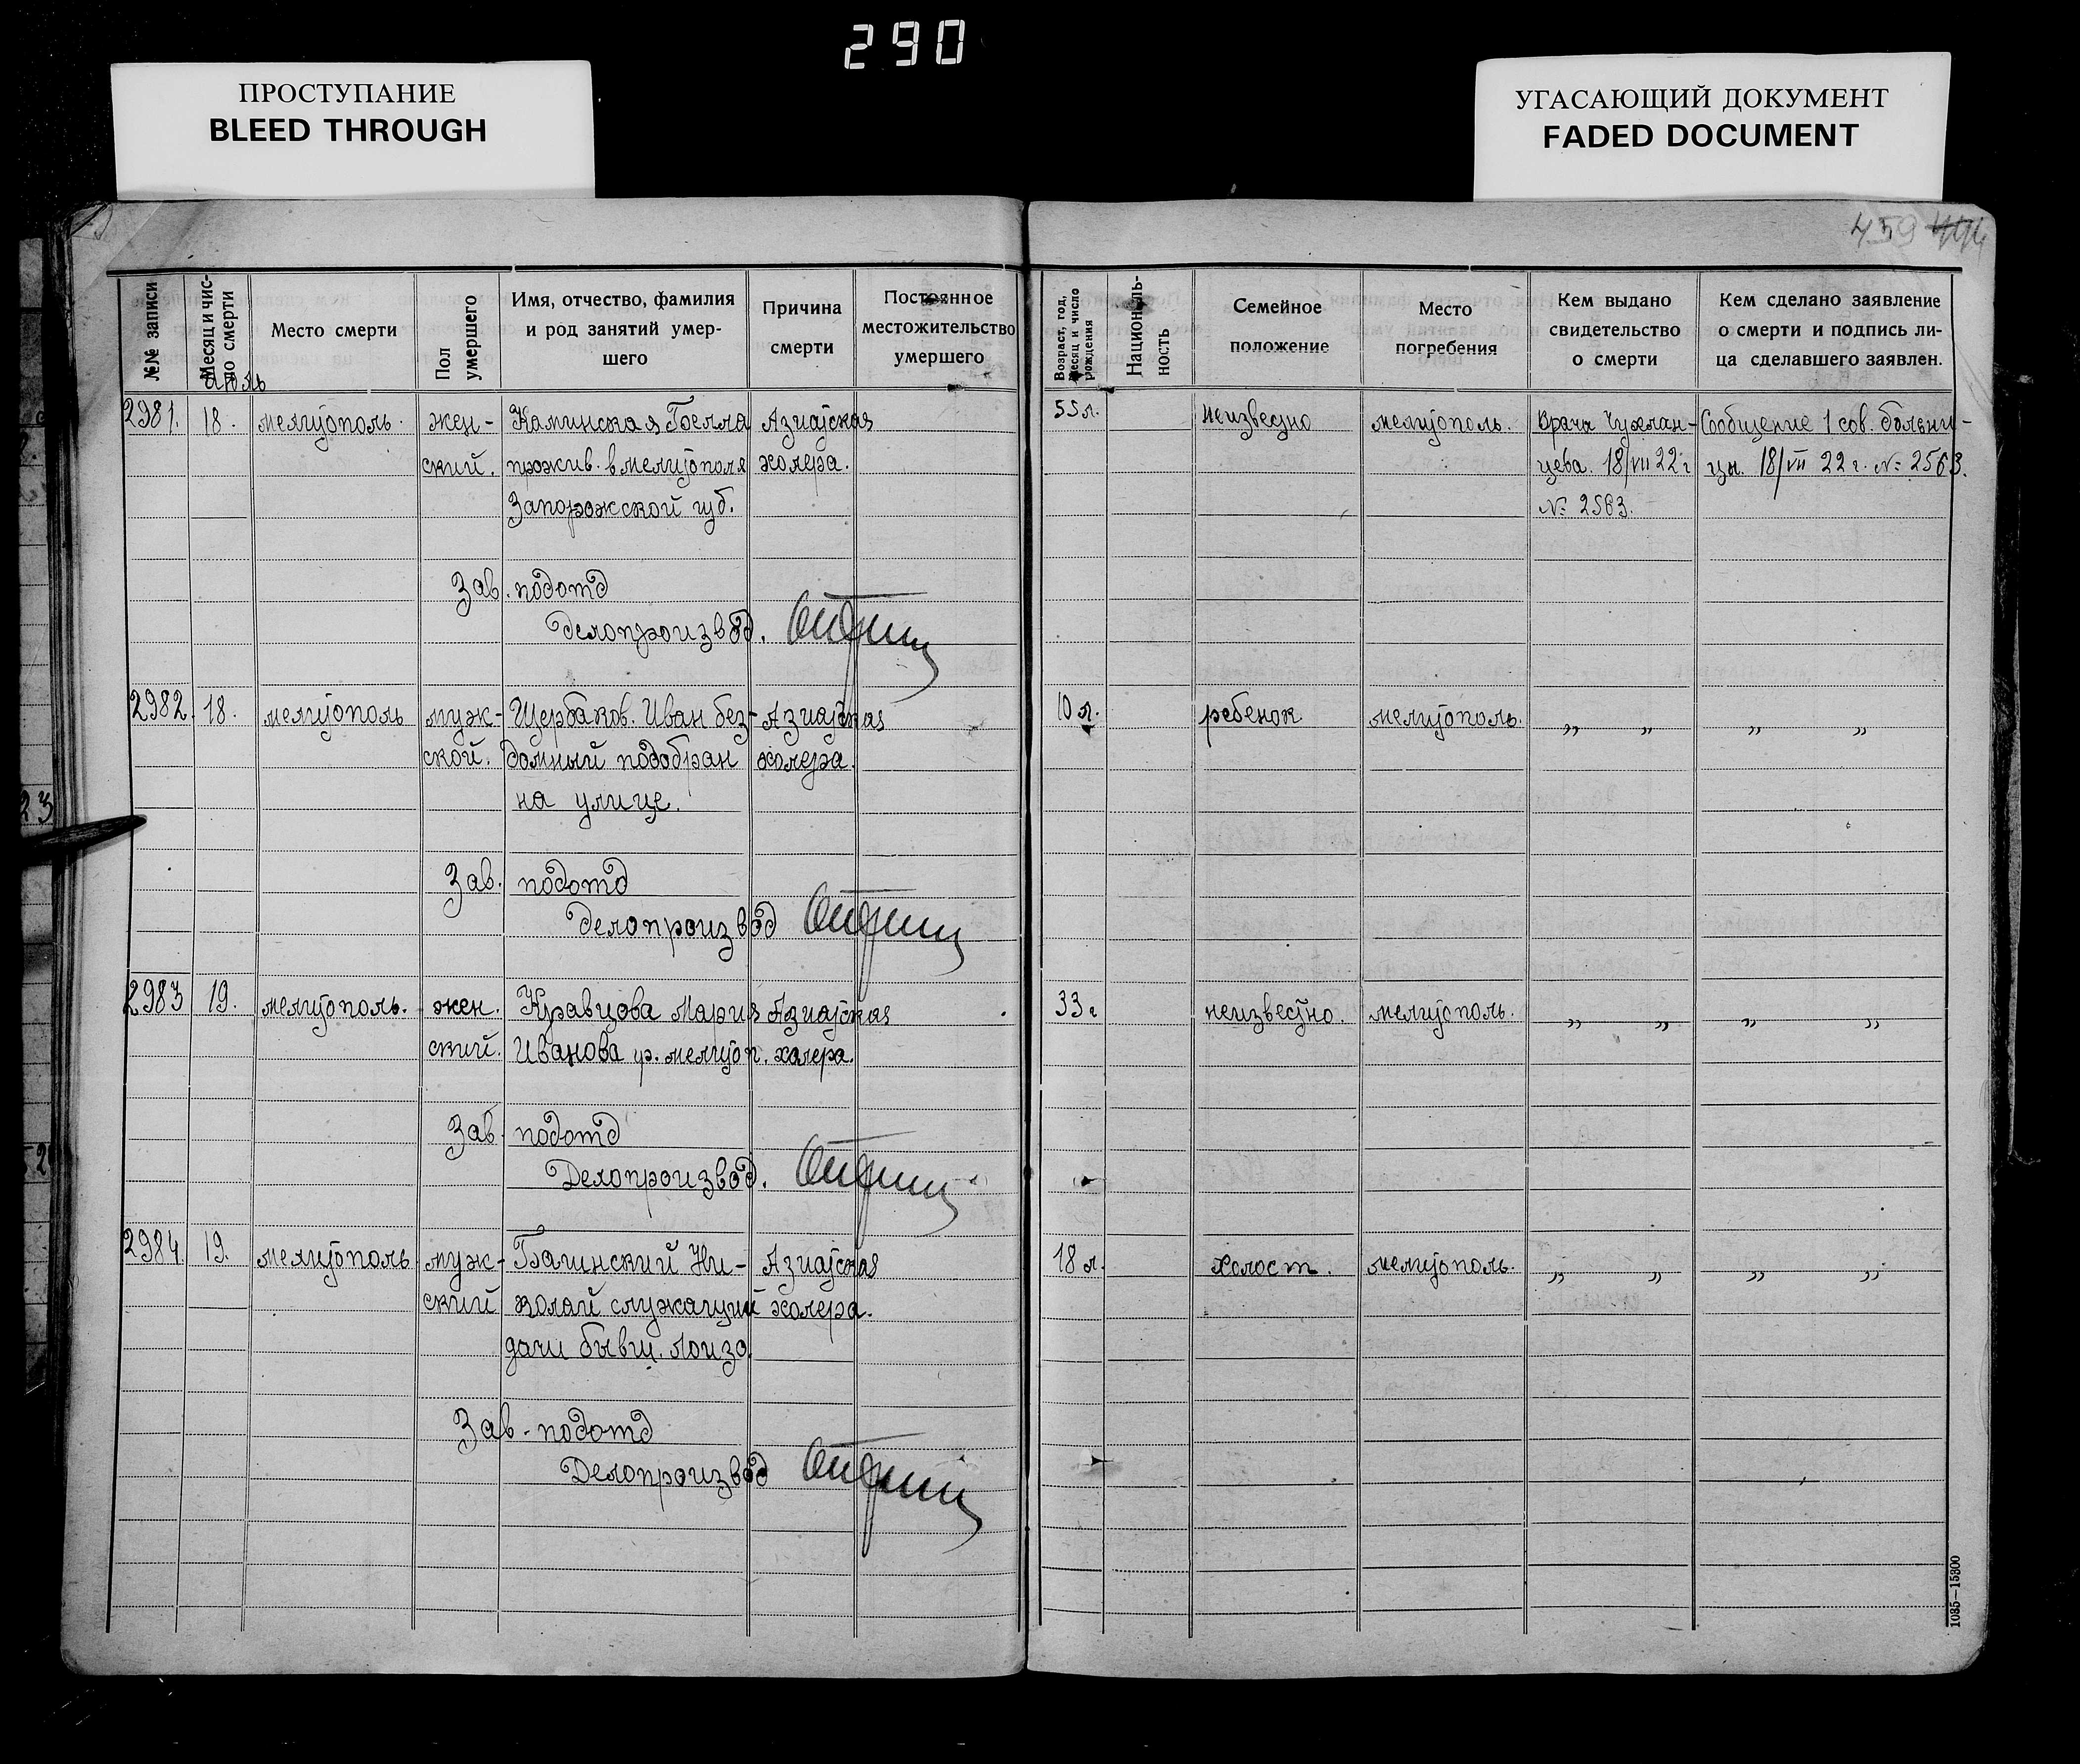 290
ПРОСТУПАНИЕ
BLEED THROUGH
УГАСАЮЩИЙ ДОКУМЕНТ
FADED DOCUMENT
459
№№ записи
Месяц и число смерти
Место смерти
Пол умершего
Имя, отчество, фамилия
и род занятий умер-
шего
Причина
смерти
Постоянное
местожительство
умершего
Возраст, год, месяц и число рождения
Националь-
ность
Семейное
положение
Место
погребения
Кем выдано
свидетельство
о смерти
Кем сделано заявление
о смерти и подпись ли-
ца сделавшего заявлен.
июль
2981. 18. мелитополь. жен- Каминская Белла Азиатская 55 л. неизвестно мелитополь. Врача Чухлан- Сообщение 1 сов. больни-
ский. прожив. в мелитополя холера. цева. 18/VII 22 г цы. 18/VII 22 г. № 2563.
Запорожской губ. № 2563.
Зав. подотд
Делопроизвод.
2982. 18. мелитополь муж- Щербаков. Иван без- Азиатская 10 л. ребенок мелитополь. „ „ „ „
ской. домный подобран холера.
на улице.
Зав. подотд
делопроизвод
2983 19. мелитополь. жен. Кравцова Мария Азиатская 33 г неизвестно. мелитополь. „ „ „ „
ский. Иванова гр. мелитоп. холера.
Зав. подотд
Делопроизвод.
2984. 19. мелитополь муж- Бачинский Ни- Азиатская 18 л. холост. мелитополь. „ „ „ „
ский колай служащий холера.
дачи бывш.
Зав. подотд
Делопроизвод
1035—15800
23
2